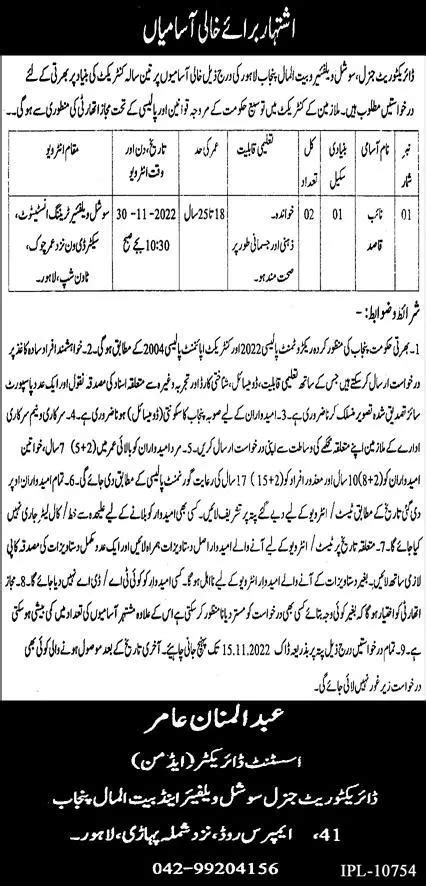 اشتہار برائے خالی آسامیاں
ڈائریکٹوریٹ جنرل، سوشل ویلفیئر و بیت المال پنجاب لاہور کی درج ذیل خالی آسامیوں پر تین سالہ کنٹریکٹ کی بنیاد پر بھرتی کے لئے
درخواستیں مطلوب ہیں۔ ملازمین کے کنٹریکٹ میں توسیع حکومت کے مروجہ قوانین اور پالیسی کے تحت مجاز اتھارٹی کی منظوری سے ہوگی۔
نمبر شمار
نام آسامی
بنیادی سکیل
کل تعداد
تعلیمی قابلیت
عمر کی حد
تاریخ، دن اور وقت انٹرویو
مقام انٹرویو
01
نائب قاصد
01
02
خواندہ۔
ذہنی اور جسمانی طور پر
صحت مند ہو۔
18 تا 25 سال
30-11-2022
10:30 بجے صبح
سوشل ویلفیئر ٹریننگ انسٹیٹیوٹ،
سیکٹر ڈی ون نزد عمر چوک،
ٹاؤن شپ، لاہور۔
شرائط و ضوابط:-
1- بھرتی حکومت پنجاب کی منظور کردہ ریکروٹمنٹ پالیسی 2022 اور کنٹریکٹ اپائنٹمنٹ پالیسی 2004 کے مطابق ہوگی۔ 2- خواہشمند افراد سادہ کاغذ پر
درخواست ارسال کر سکتے ہیں جس کے ساتھ تعلیمی قابلیت، ڈومیسائل، شناختی کارڈ اور تجربہ وغیرہ سے متعلقہ اسناد کی مصدقہ نقول اور ایک عدد پاسپورٹ
سائز تصدیق شدہ تصویر منسلک کرنا ضروری ہے۔ 3- امیدواران کے لیے صوبہ پنجاب کا سکونتی (ڈومیسائل) ہونا ضروری ہے۔ 4- سرکاری و نیم سرکاری
ادارے کے ملازمین اپنے متعلقہ محکمے کی وساطت سے اپنی درخواست ارسال کریں۔ 5- مرد امیدواران کو بالائی عمر میں (5+2) 7 سال، خواتین
امیدواران کو (8+2) 10 سال اور معذور افراد کو (15+2) 17 سال کی رعایت گورنمنٹ پالیسی کے مطابق دی جائے گی۔ 6- تمام امیدواران اوپر
دی گئی تاریخ کے مطابق ٹیسٹ/ انٹرویو کے لیے دیے گئے پتہ پر تشریف لائیں۔ کسی بھی امیدوار کو بلانے کے لیے علیحدہ سے خط/ کال لیٹر جاری نہیں
کیا جائے گا۔ 7- متعلقہ تاریخ پر ٹیسٹ/ انٹرویو کے لیے آنے والے امیدوار اصل دستاویزات ہمراہ لائیں اور ایک عدد مکمل دستاویزات کی مصدقہ کاپی
لازمی ساتھ لائیں۔ بغیر دستاویزات کے آنے والے امیدوار انٹرویو کے لیے نااہل ہوگا۔ کسی امیدوار کو کوئی ٹی اے/ ڈی اے نہیں دیا جائے گا۔ 8- مجاز
اتھارٹی کو اختیار ہوگا کہ بغیر کوئی وجہ بتائے کسی بھی درخواست کو مسترد یا نامنظور کر سکتی ہے اس کے علاوہ مشتہر آسامیوں کی تعداد میں کمی بیشی ہو سکتی
ہے۔ 9- تمام درخواستیں درج ذیل پتہ پر بذریعہ ڈاک 15.11.2022 تک پہنچ جانی چاہیے۔ آخری تاریخ کے بعد موصول ہونے والی کوئی بھی
درخواست زیر غور نہیں لائی جائے گی۔
عبدالمنان عامر
اسسٹنٹ ڈائریکٹر (ایڈمن)
ڈائریکٹوریٹ جنرل سوشل ویلفیئر اینڈ بیت المال پنجاب
41، ایمپرس روڈ، نزد شملہ پہاڑی، لاہور۔
042-99204156
IPL-10754